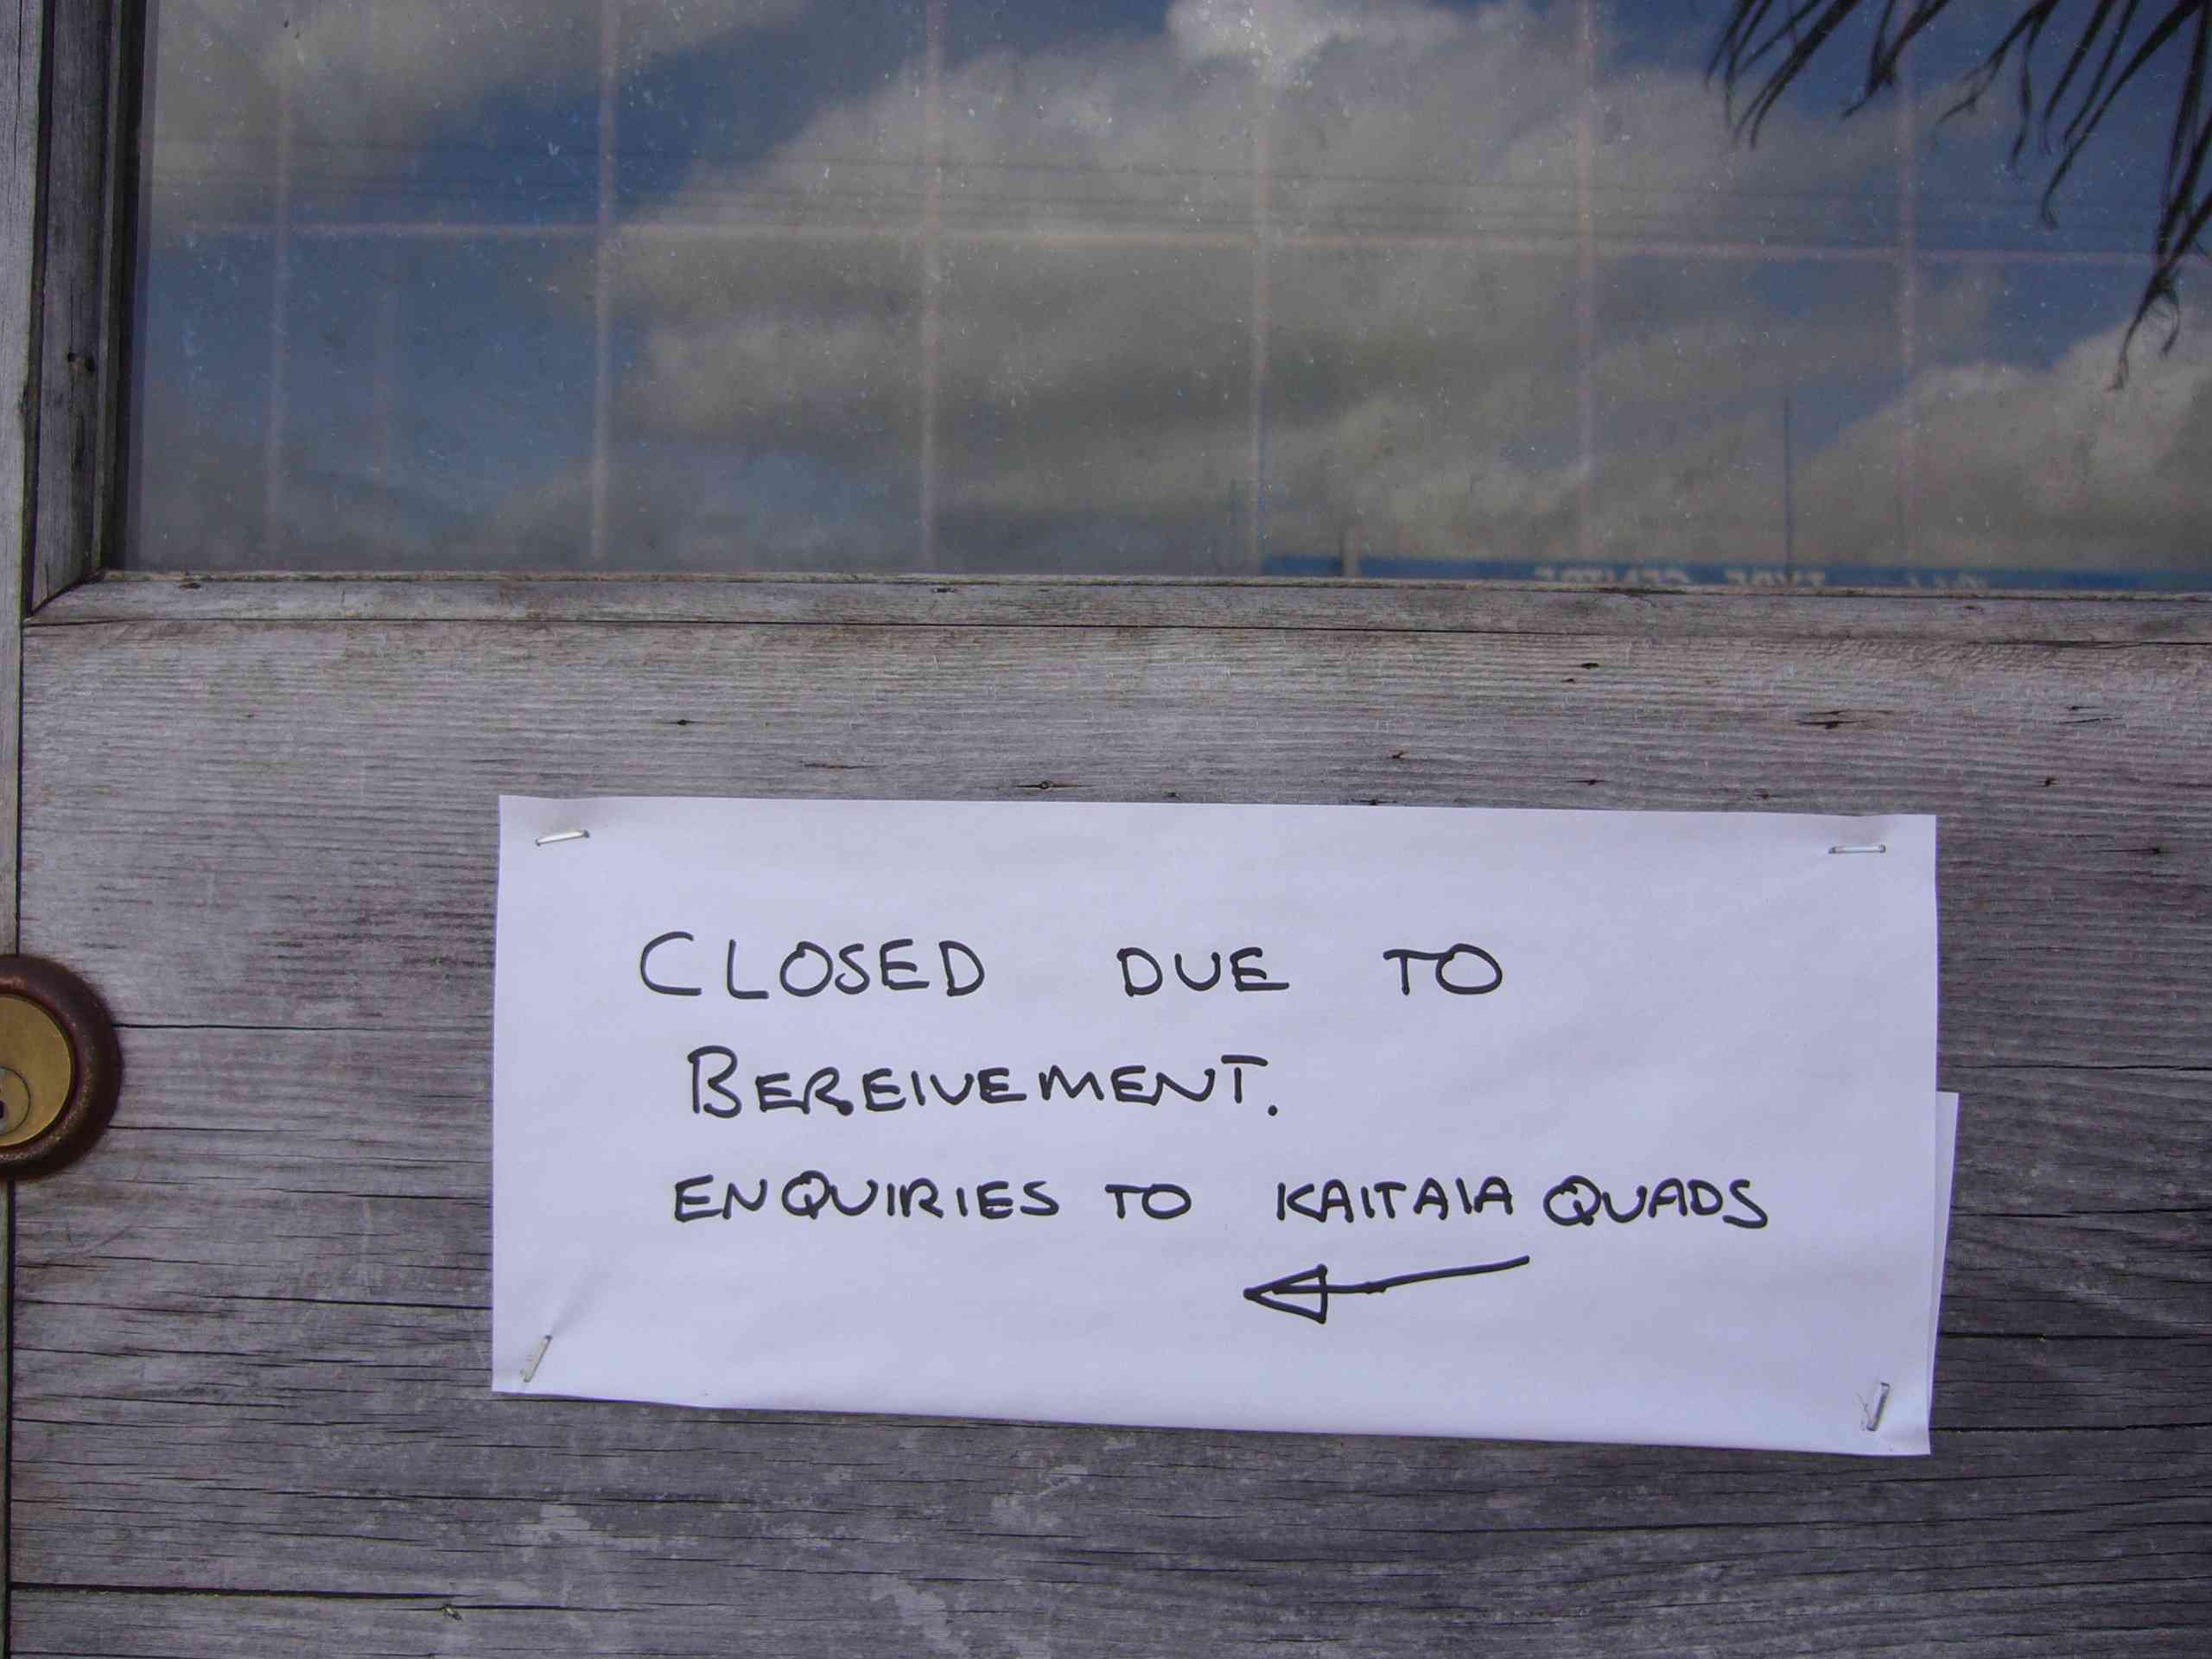 CLOSED DUE TO
BEREIVEMENT.
ENQUIRIES TO KAITAIA QUADS